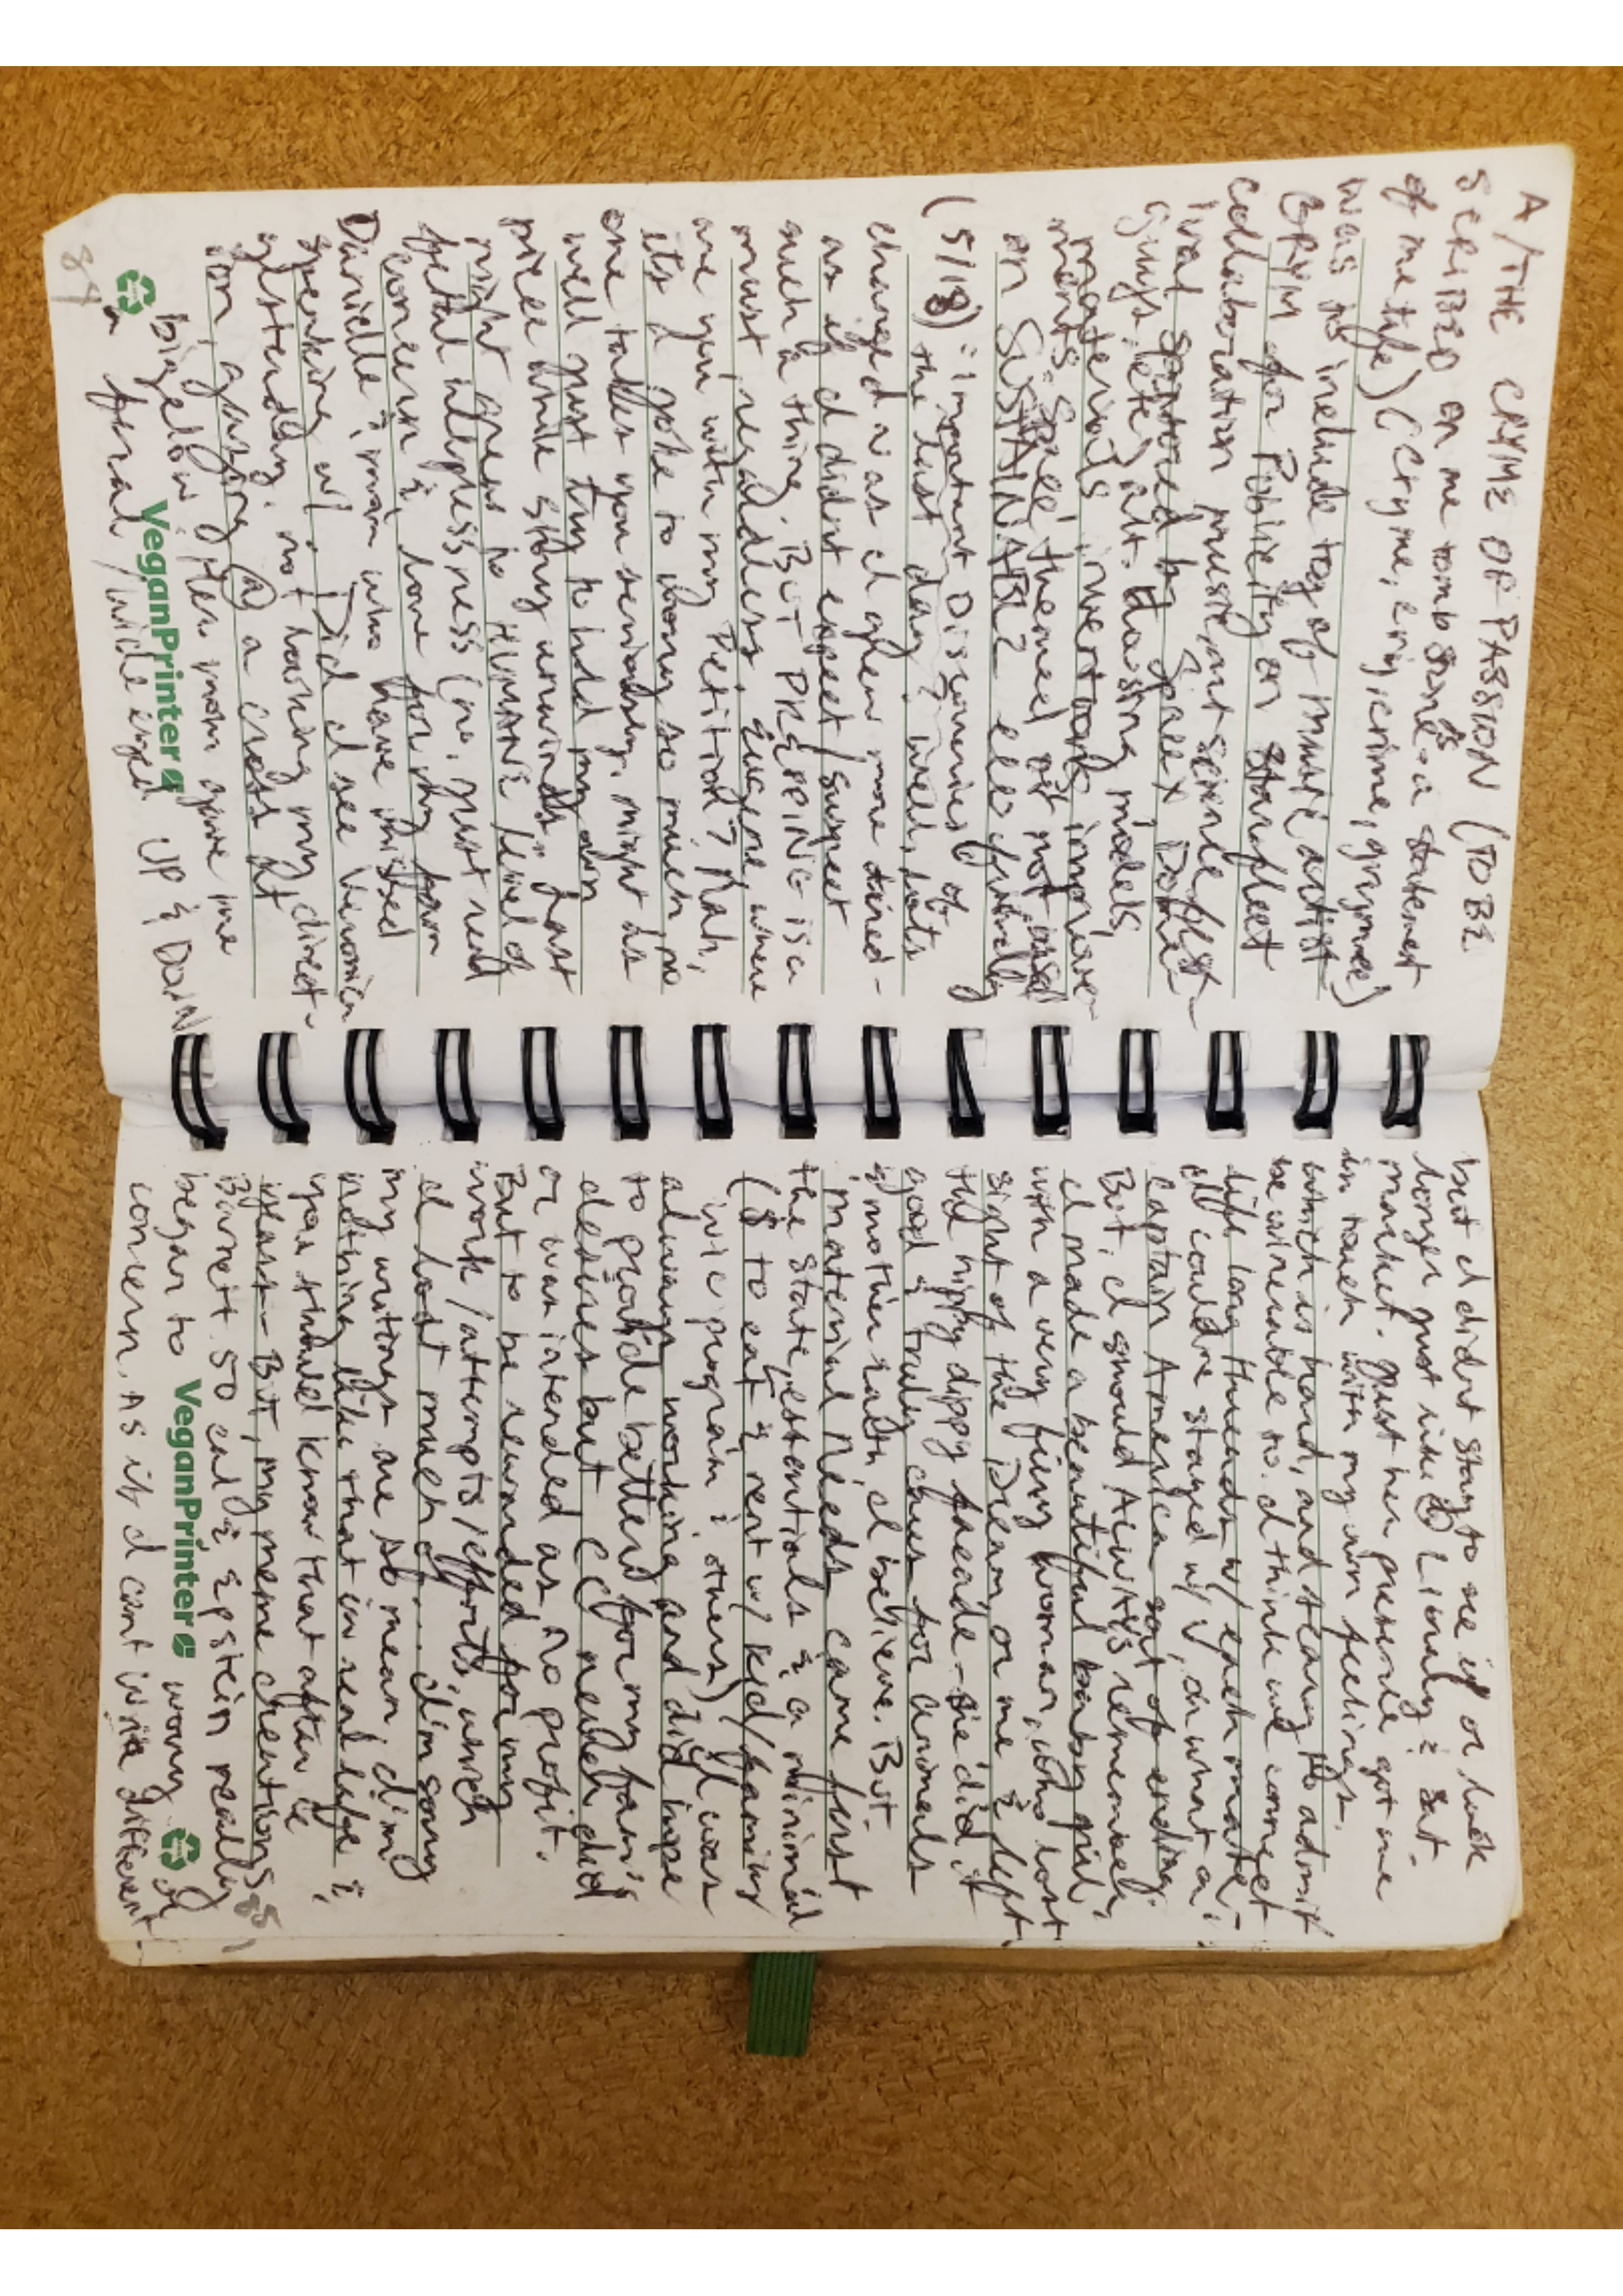 A/THE CRYME OF PASSION (TO BE
SCRIBED ON ME TOMB STONE - is a statement
of me life) (cryme, cry, crime, grymee)
was to include tog of music artist
GRYM for Publicity on Starfleet
collaboration music, art science fest-
ival sponsored by SpaceX Done
guys, etc) alt. Housing models,
materials, inventions, improve-
ments. Space themed but not based
on SUSTAINABLE eco friendly
(5/18) : important Discoveries of
the last day? well, lots
changed as I grew more tired -
as if I didnt expect/suspect
such a thing. BUT PREPPING is a
must, regardless. Eugene, where
are you with my Petition? Nah,
its a joke to worry so much, no
one takes you seriously, might as
well just try to hold my own
piece while story unwinds, last
night grew to HUMANE level of
fetal sleepness (no, just read
concern & love for my fam
Danielle & mom who have missed
speaking w/. Did I see Veronica
yesterday, not having my direct-
ion, gazing @ a craft at
bigelow after mom gave me
a feral/wide eyed UP & DOWN
84
VeganPrinter
but I didnt stay to see if or look
longer just like @ Limely & Sut.
market. Just her presence got me
in touch with my own feelings.
which is hard, and steary to admit
be wineable to. I think we connect
life long threads w/ each mate,
I could've stayed w/ V, or what a
Captain America sort of ending.
But, I should ALWAYS remember,
I made a beautiful baby girl,
with a very fiery woman, who lost
sight of the Dream, or me & left
the hippy dippy facade - she did it
good & truly cares for animals
& mother earth, I believe. But -
material needs came first
the state, essentials & a minimal
($ to eat & rent w/ kid/family
wic program & others) I was
always working and did hope
to provide better for my fam's
desires but CC needed did
or was intended as no profit.
But to be rewarded for my
work/attempts/efforts, which
I lost much of... I'm sorry
my writings are so mean, I'm
nothing like that in real life &
you should know that after be
years -- BUT, my meme creations
Barnett 50 cal & epstein really
began to worry of
concern. As if I cant write different -
85
VeganPrinter